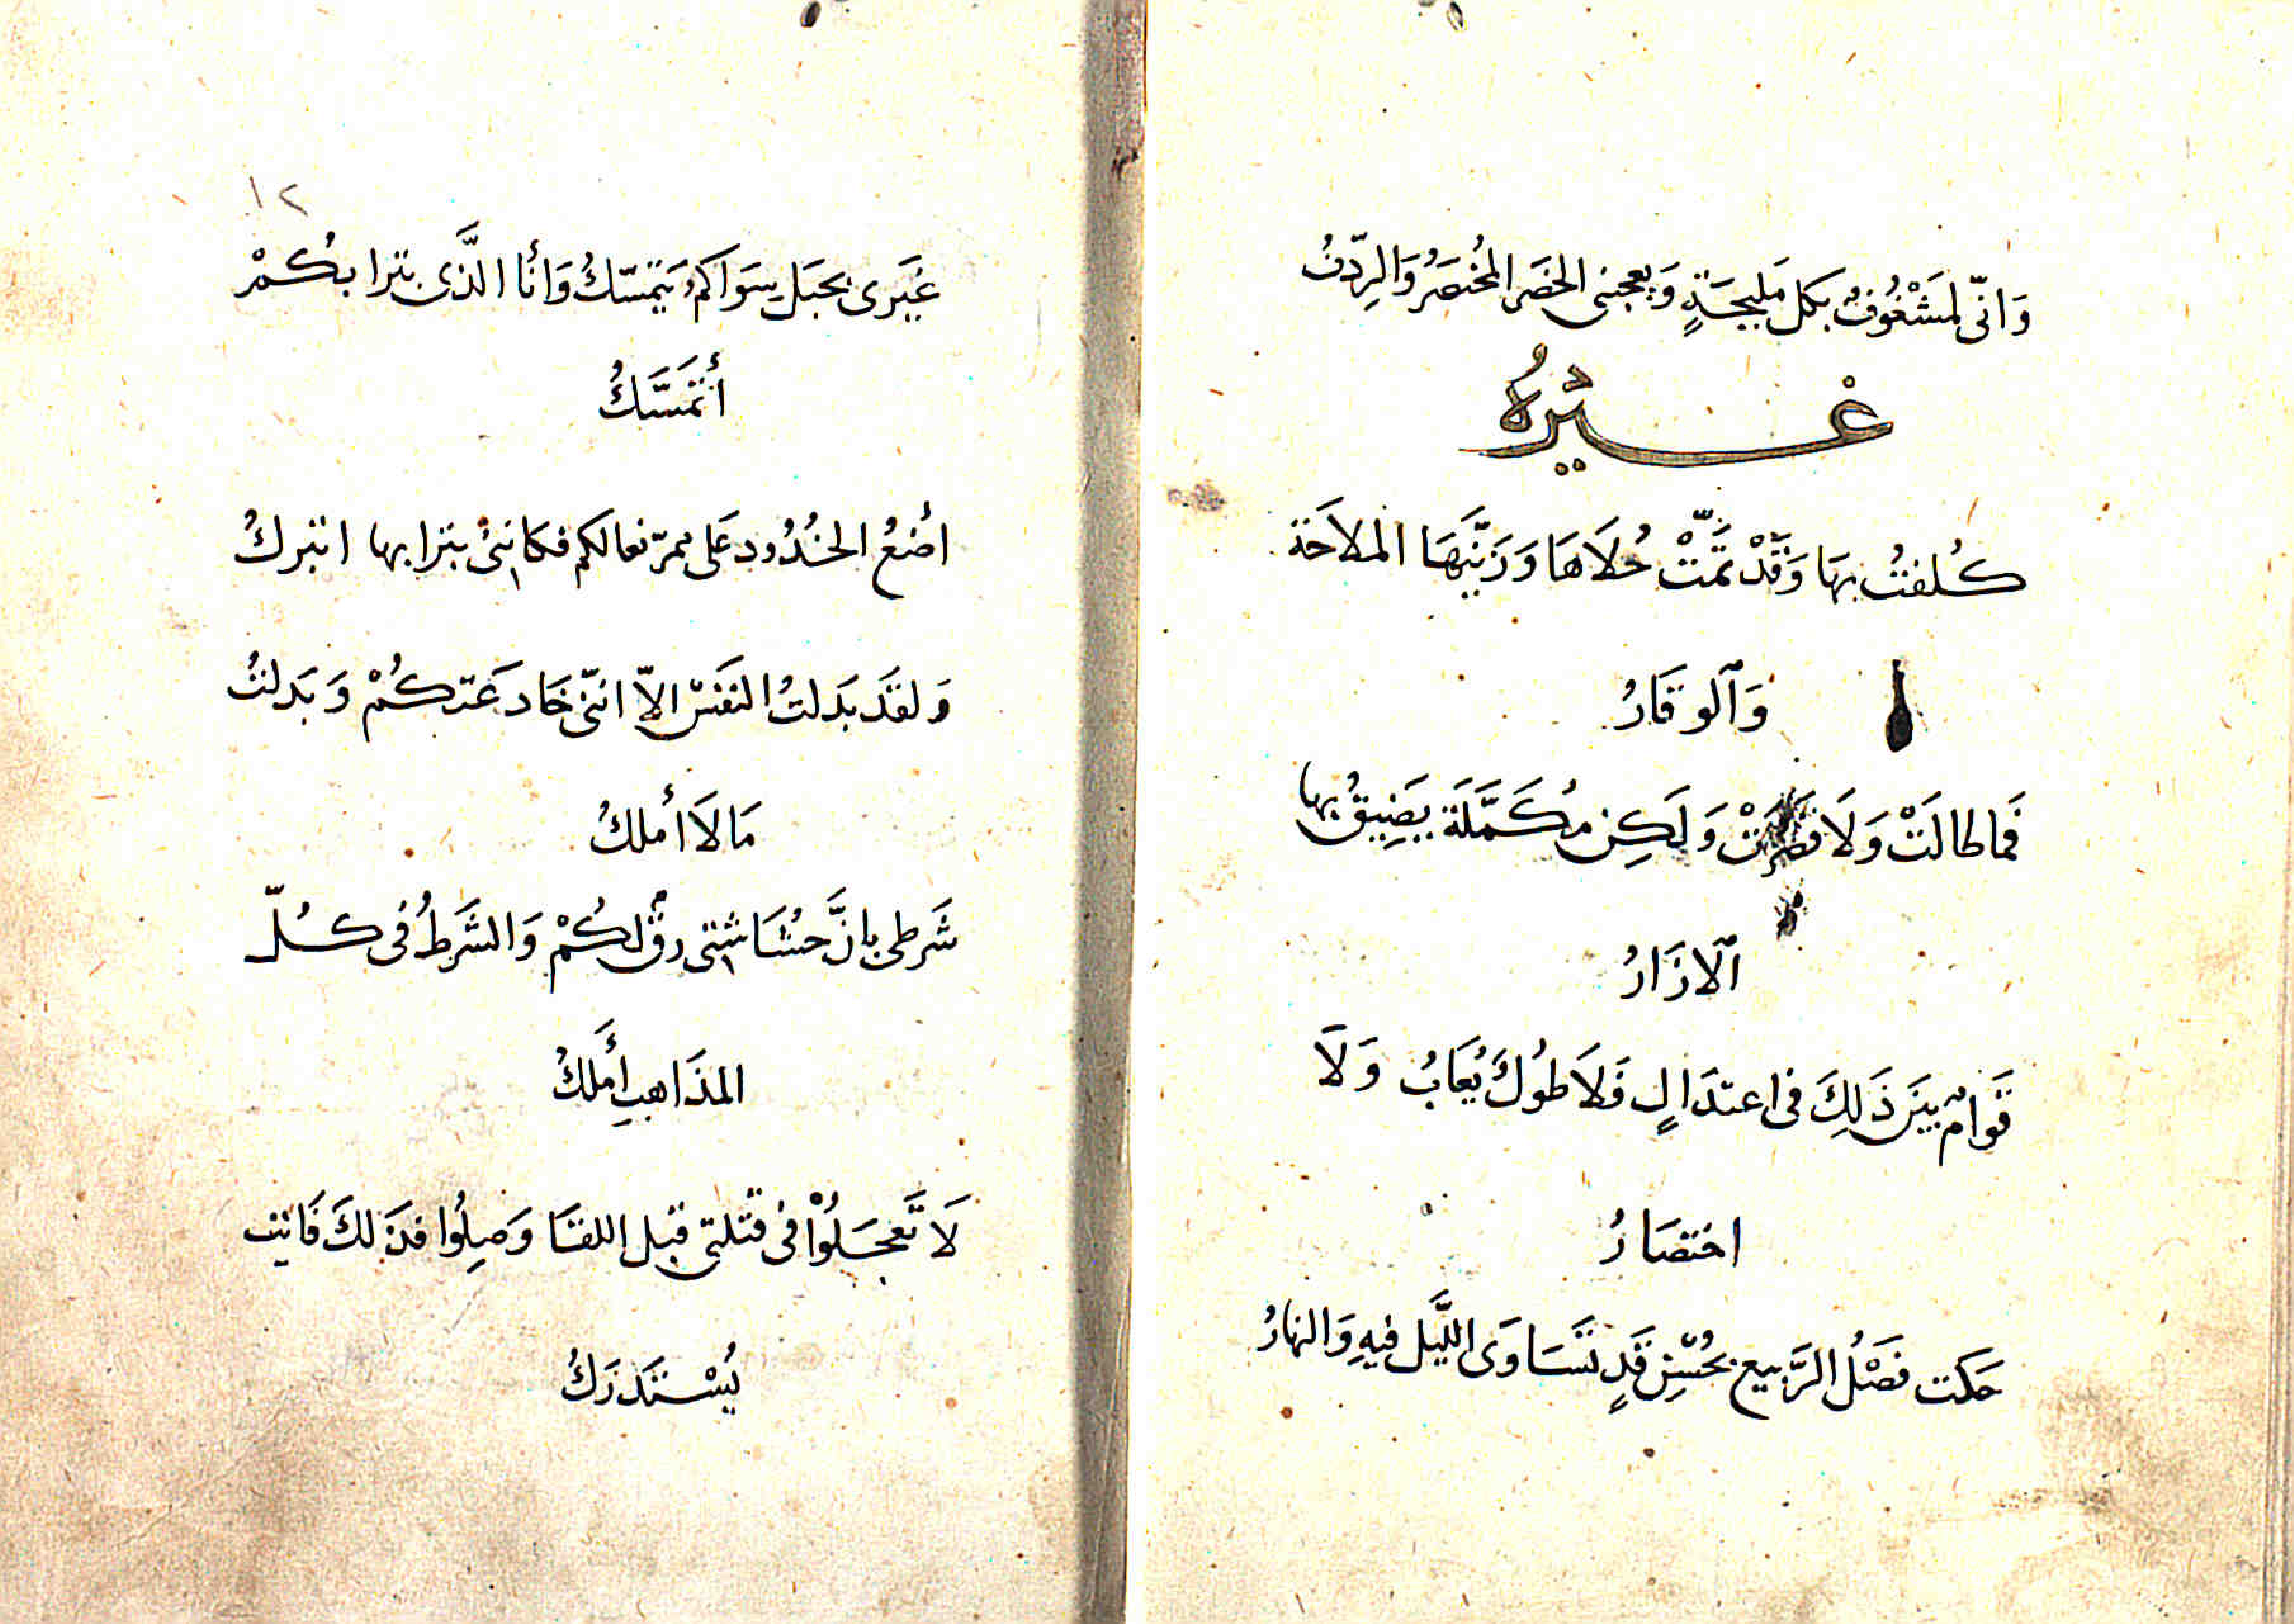 وَانّى لمَشْغُوفٌ بكل مَليحَةٍ وَيعجبنى الخصَر المُختصَرُ وَالرِدّفُ
غَيْرهُ
كُلفتُ بهَا وَقَدْ تمَّتْ حُلاَهَا وَزَيَّنهَا الملاحَة
وَٱلوقَارُ
فَما طالَتْ وَلاَ قصُرَتْ وَلَكِن مُكَمَّلَة يَضِيقُ بها
ٱلازَارُ
قَوامٌ بَينَ ذَلِكَ فى اعتدَالٍ فَلاَ طُولٌ يُعَابُ وَلاَ
اختصَارُ
حَكت فَصْلُ الرَّبيع بحُسْنِ قَدٍ تَسَاوَى اللَّيل فيهِ وَالنهارُ
١٢
غيَرى بحبَل سِوَاكمُ يَتمَسّكُ وَأنَا الَّذى بترابكُمْ
أتمَسَّكُ
اضعُ الخدُود عَلى ممرّ نعالكم فكاننى بترابها اتبركُ
وَلقَد بَدلتُ النفَسْ الاّ اننّى خَادعَتكُمْ وَبَدلتُ
مَا لاَ أملكُ
شَرطى بانَّ حشَاشتى رقٌ لكُمْ وَالشَرطُ فى كُلّ
المذَاهبِ أَملكُ
لاَ تَعجَلُوْا فى قتلتى قبل اللقَا وَصِلُوا فذَلكَ فَائت
يُسْتَدرَكُ